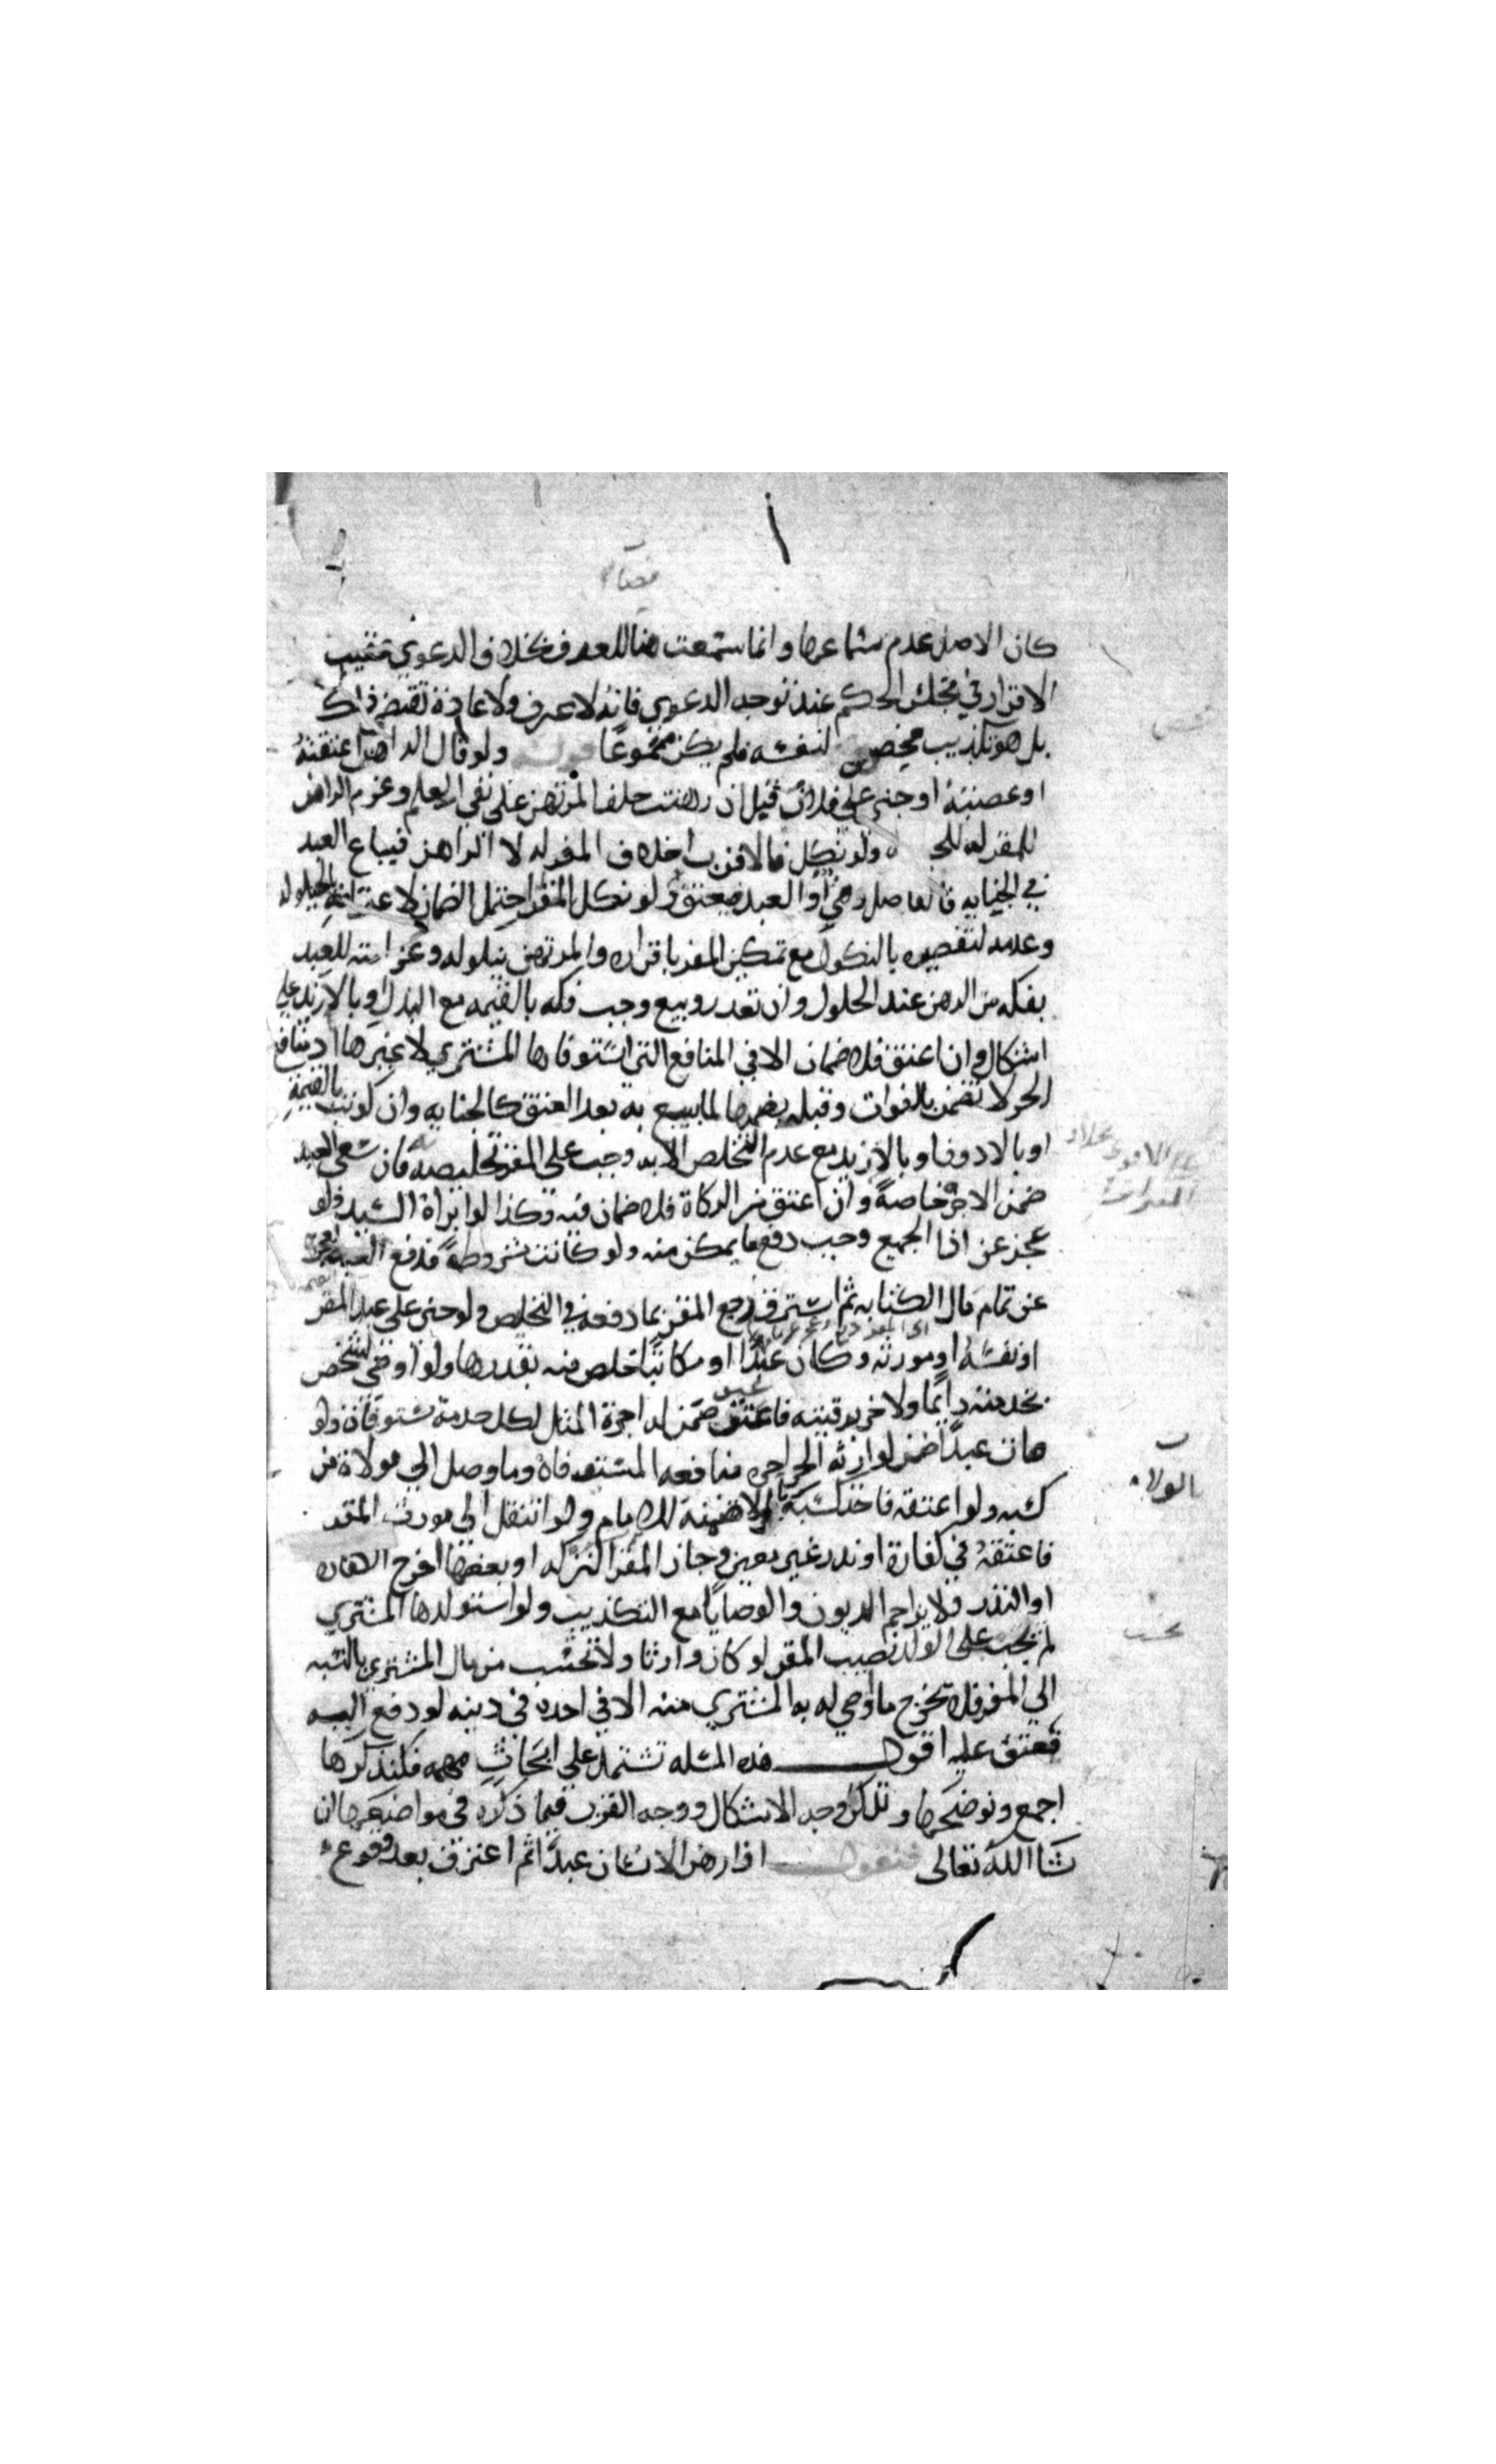 كان الاصل عدم سماعها وانما سمعت هنا للعرف بخلاف الدعوي عقيب
الاقرار في مجلس الحكم عند توجه الدعوي فانه لا عرف ولا عادة تقتضي ذلك
بل هو تكذيب محض لنفسه فلم يكن مسموعا قوله ولو قال الراهن اعتقته
او غصبته او جني علي فلان قبل ان رهنت حلف المرتهن علي نفي العلم وغرم الراهن
للمقر له ولو نكل فالاقرب احلاف المقر له لا الراهن فيباع العبد
في الجنايه فالفاضل رهن او العبد فيعتق ولو نكل المقر احتمل الضمان لاعترافه بالحيلوله
وعدمه لتقصيره بالنكول مع تمكين المقر باقراره والمرتهن بنكوله وغرامته للعبد
بفكه من الرهن عند الحلول وان تعذر وبيع وجب فكه بالقيمه مع البذل وبالازيد علي
اشكال وان اعتق فلا ضمان الا في المنافع التي استوفاها المشتري لا غيرها اذ منافع
الحر لا تضمن بالفوات وقبله يضمنها لما بيع به بعد العتق كالجنايه وان كوتب بالقيمة
او بالادون او بالازيد مع عدم التخلص الا به وجب علي المقر تخليصه فان سعي العبد
ضمن الاجرة خاصة وان اعتق من الزكاة فلا ضمان فيه وكذا لو ابراه السيد ولو
عجز عن اداء الجميع وجب دفع ما يمكن منه ولو كانت مشروطة فدفع البعض
عن تمام مال الكتابه ثم استرق رجع المقر بما دفعه في التخليص ولو جني علي عبد المقر
او نفسه او مورثه وكان عبدا او مكاتبا تخلص منه بقدرها ولو اوصي لشخص
بخدمته دايما ولاخر برقبته فاعتق ضمن له اجرة المثل لكل خدمة مستوفاة ولو
مات عبدا ضمن لوارثه الحر اجره منافعه المستوفاة وما وصل الي مولاة من
كسبه ولو اعتقه فاخذ كسبه بالولا ضمنه للامام ولو انتقل الي مورث المقر
فاعتقه في كفارة او نذر غير معين وحاز المقر التركه او بعضها اخرج الكفاره
او النذر فلا يزاحم الديون والوصايا مع التكذيب ولو استولدها المشتري
لم يجب علي الولد نصيب المقر لو كان وارثا ولا تحتسب من مال المشتري بالنسبه
الي المقر فلا تخرج ما اوصي له به المشتري منه الا في احده في دينه لو دفع اليه
فعتق عليه اقول هذه المسله تشتمل علي ابحاث مهمه فلنذكرها
اجمع ونوضحها ونذكر وجه الاشكال ووجه القرب فيما ذكره في مواضعها ان
شا الله تعالى فنقول اذا رهن الانسان عبدا ثم اعترف بعد وقوع
بالولاء